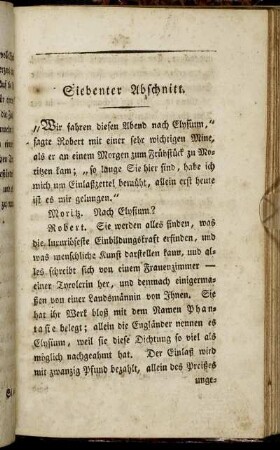 Siebenter Abschnitt.
„Wir fahren diesen Abend nach Elysium,“
sagte Robert mit einer sehr wichtigen Mine,
als er an einem Morgen zum Frühstück zu Mo-
ritzen kam; „so lange Sie hier sind, habe ich
mich um Einlaßzettel bemüht, allein erst heute
ist es mir gelungen.“
Moritz. Nach Elysium?
Robert. Sie werden alles finden, was
die luxuriöseste Einbildungskraft erfinden, und
was menschliche Kunst darstellen kann, und al-
les schreibt sich von einem Frauenzimmer —
einer Tyrolerin her, und dennach einigerma-
ßen von einer Landsmännin von Ihnen. Sie
hat ihr Werk bloß mit dem Namen Phan-
tasie belegt; allein die Engländer nennen es
Elysium, weil sie diese Dichtung so viel als
möglich nachgeahmt hat. Der Einlaß wird
mit zwanzig Pfund bezahlt, allein des Preißes
unge-